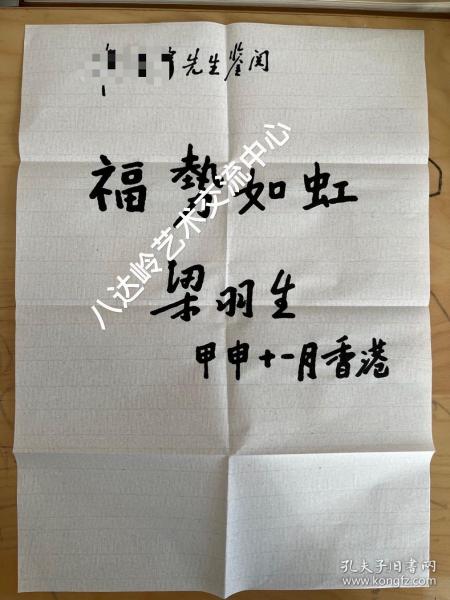 先生鉴阅
福势如虹
梁羽生
甲申十一月香港
八达岭艺术交流中心
孔夫子旧书网
www.kongfz.com